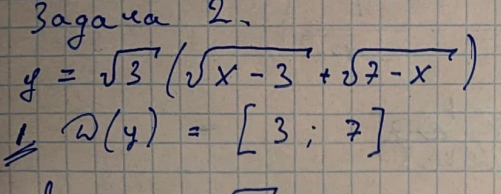 Задача 2.
y = √3 (√x - 3 + √7 - x)
1. D(y) = [3; 7]